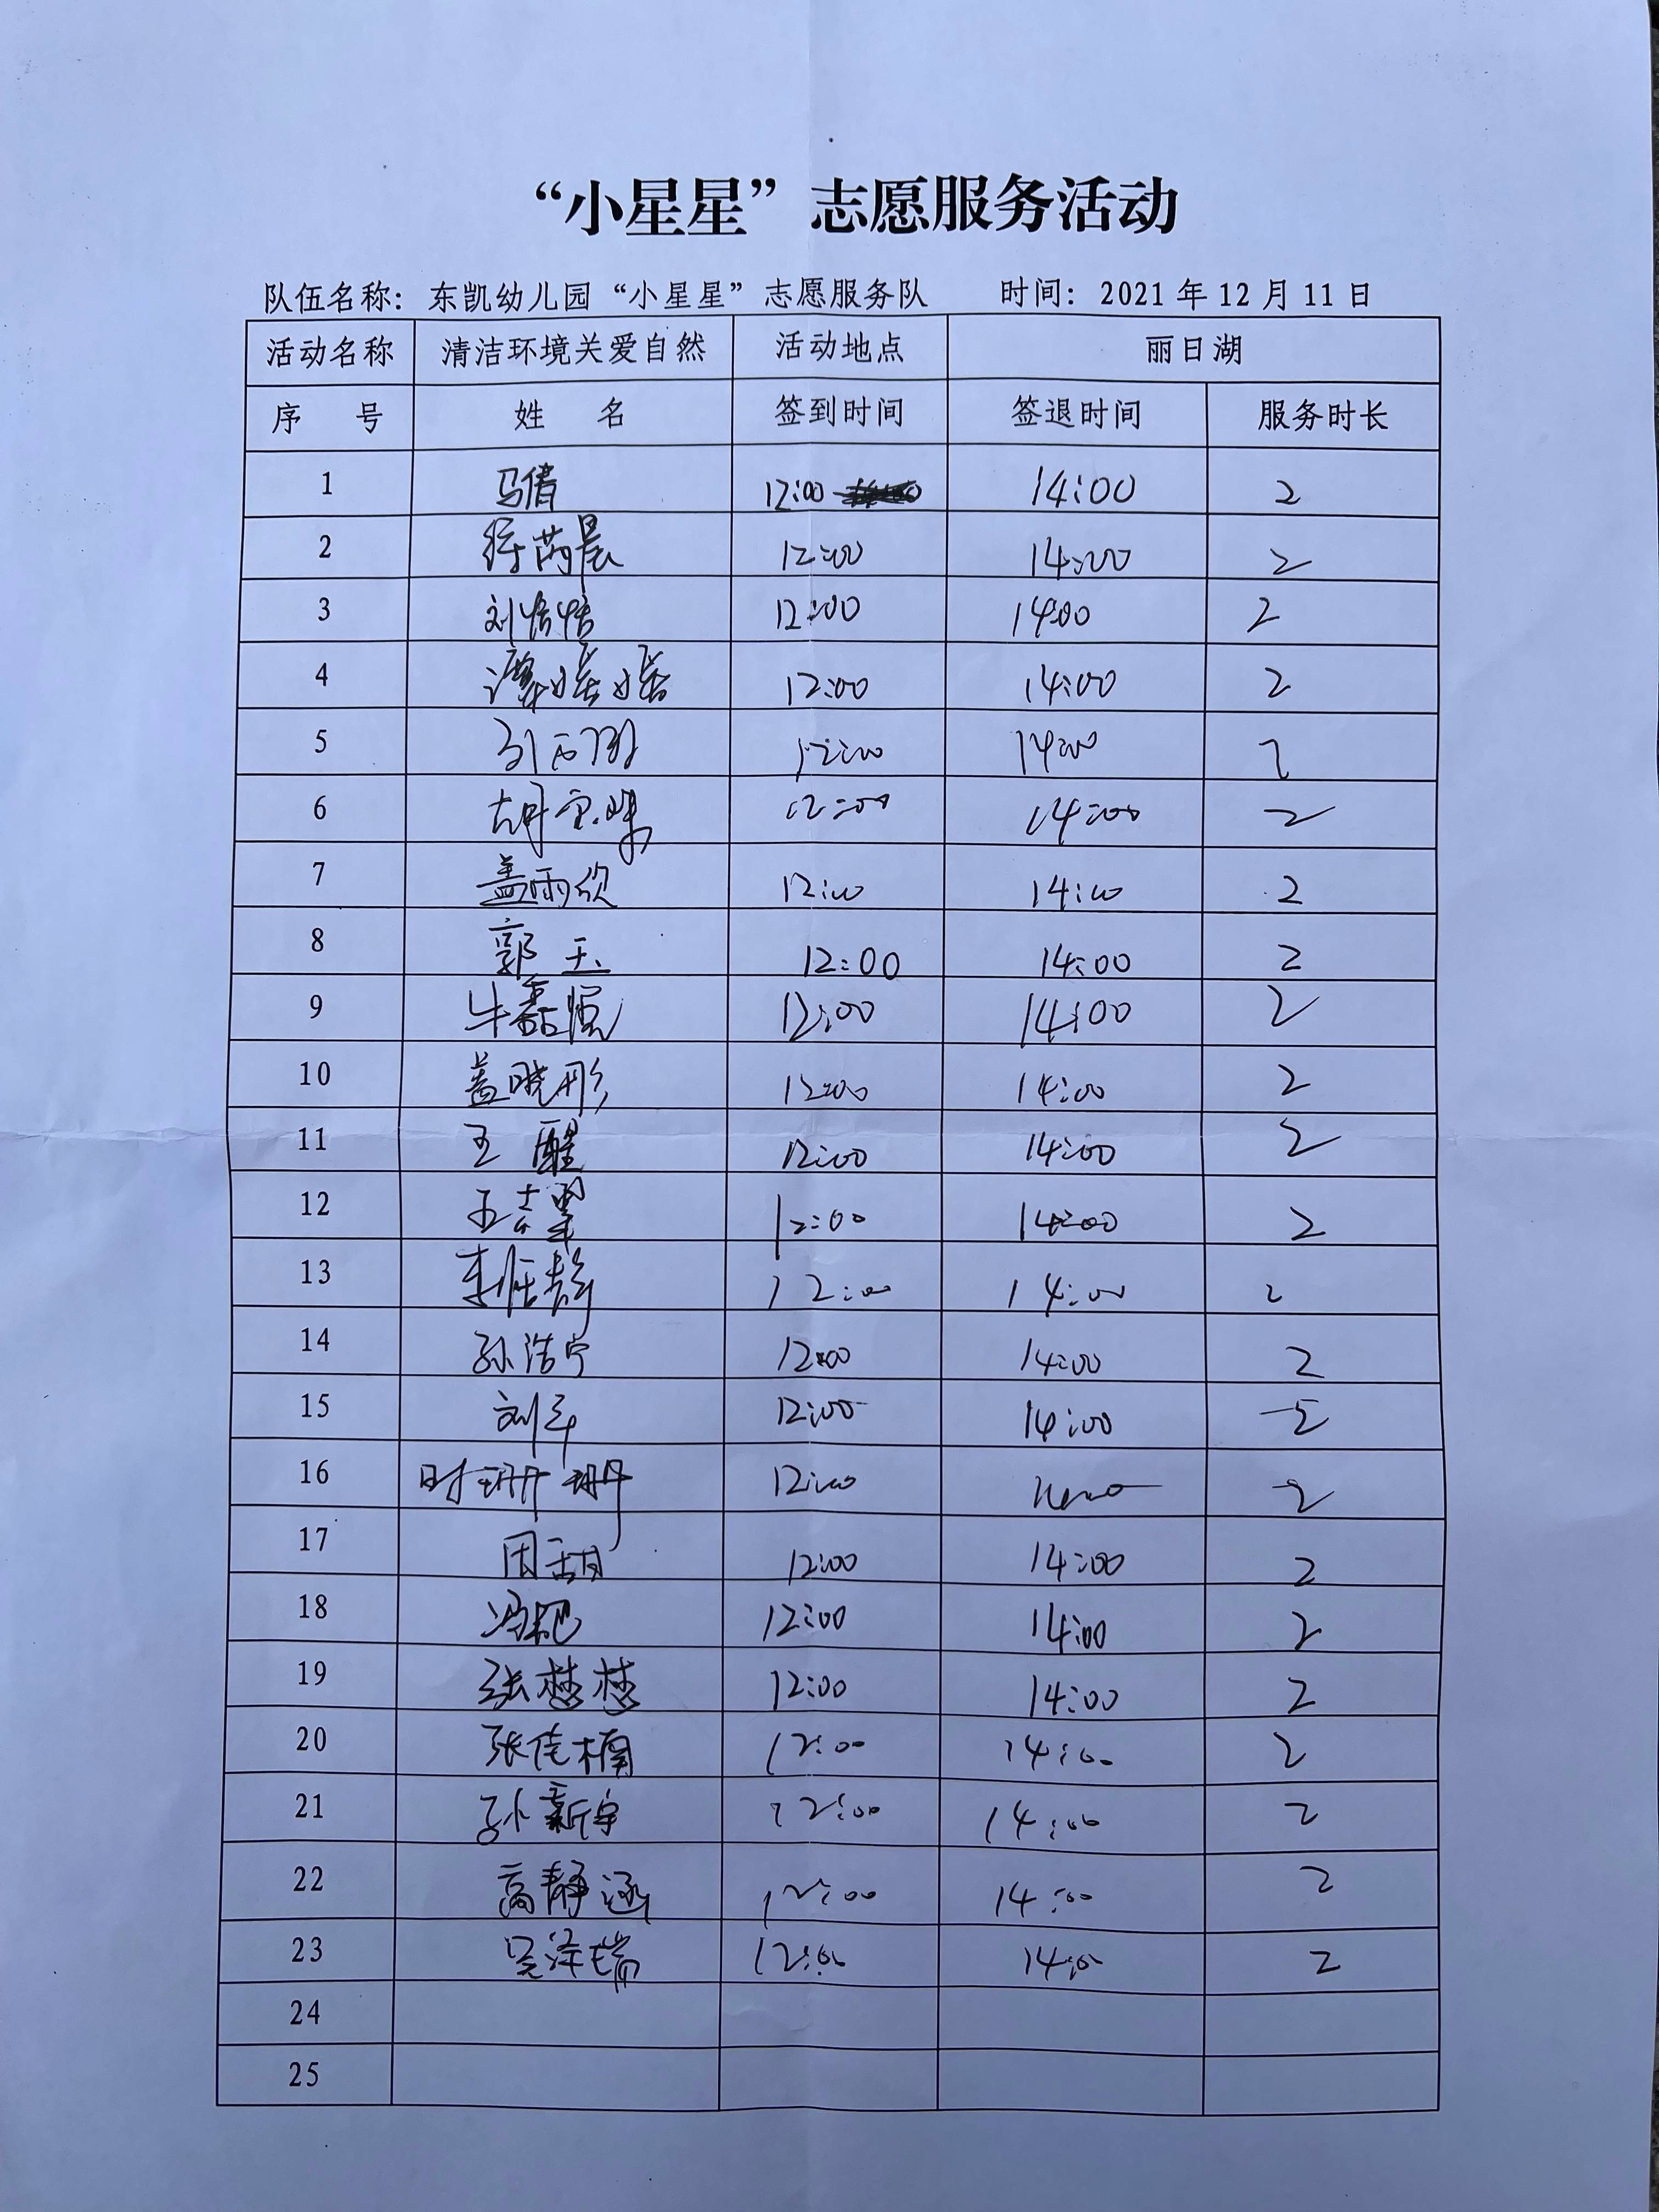 “小星星”志愿服务活动
队伍名称：东凯幼儿园“小星星”志愿服务队 时间：2021年12月11日
活动名称 清洁环境关爱自然 活动地点 丽日湖
序 号 姓 名 签到时间 签退时间 服务时长
1 马倩 12:00 14:00 2
2 徐芮晨 12:00 14:00 2
3 刘恬恬 12:00 14:00 2
4 谭媛媛 12:00 14:00 2
5 12:00 14:00 2
6 胡宝 12:00 14:00 2
7 盖雨欣 12:00 14:00 2
8 郭玉 12:00 14:00 2
9 牛 12:00 14:00 2
10 盖晓彤 12:00 14:00 2
11 王醒 12:00 14:00 2
12 王 12:00 14:00 2
13 李 静 12:00 14:00 2
14 孙浩宁 12:00 14:00 2
15 刘 12:00 14:00 2
16 时珊珊 12:00 14:00 2
17 周甜 12:00 14:00 2
18 冯 12:00 14:00 2
19 张梦梦 12:00 14:00 2
20 张佳楠 12:00 14:00 2
21 孙新宇 12:00 14:00 2
22 高静涵 12:00 14:00 2
23 吴泽瑞 12:00 14:00 2
24
25